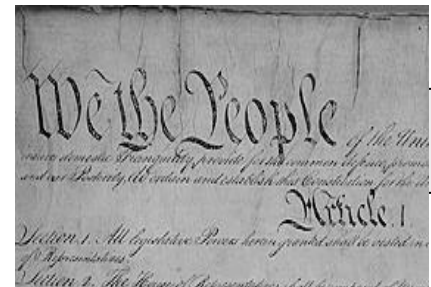 We the People of the Uni
insure domestic Tranquility, provide for the common defence, promo
and our Posterity, do ordain and establish this Constitution for the U
Article. I.
Section. 1. All legislative Powers herein granted shall be vested in a
of Representatives.
Section. 2. The House of Representatives shall be